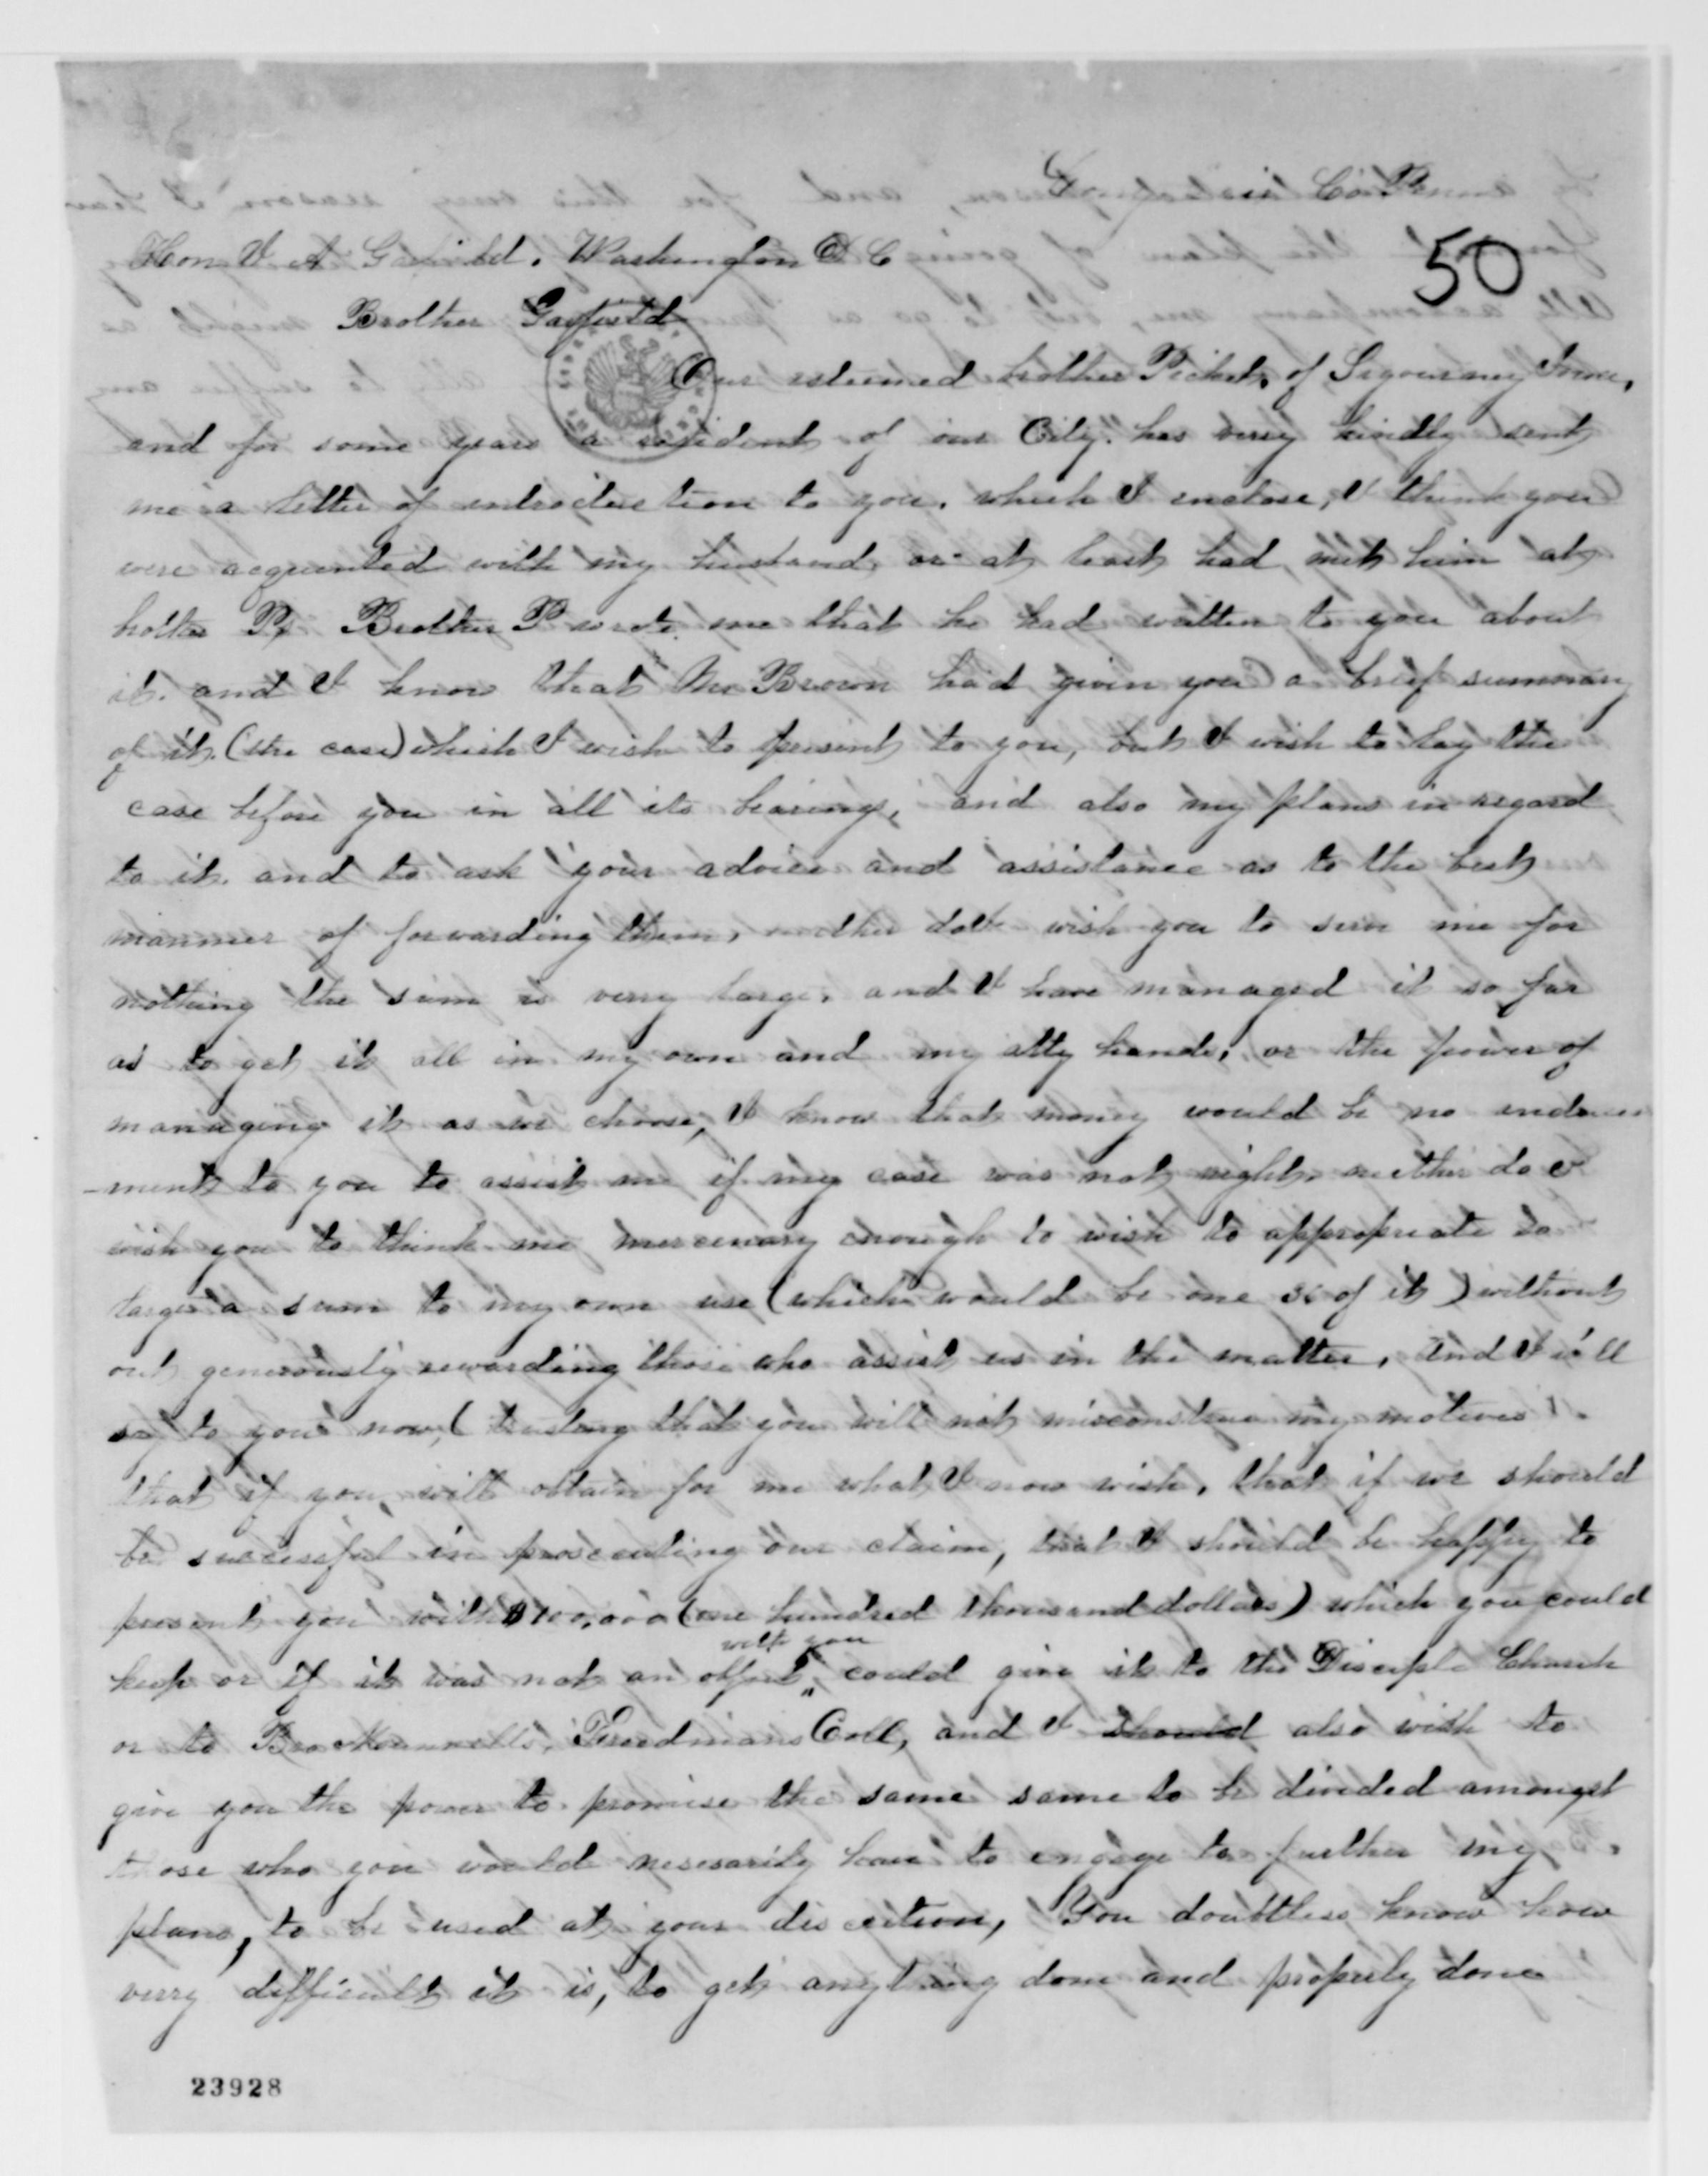 Co Penn
50
Hon J A Garfield. Washington D C
Brother Garfield
Our esteemed brother Picket, of Sigourney Iowa,
and for some years a resident of our City. has verry kindly sent
me a letter of introduction to you. which I inclose, I think you
were acquented with my husband, or at least had met him at
Brother P wrote me that he had written to you about
it. and I know that Mr Brown had given you a brief summary
of it. (the case) which I wish to present to you, but I wish to lay the
case before you in all its bearings, and also my plans in regard
to it. and to ask your advice and assistance as to the best
manner of forwarding them, neither do I wish you to serve me for
nothing the sum is verry large, and I have managed it so far
as to get it all in my own and my atty hands, or the power of
managing it as we choose, I know that money would be no induce
-ment to you to assist me if my case was not right, neither do I
wish you to think me mercenary enough to wish to appropriate so
large a sum to my own use (which would be one of it) without
out generously rewarding those who assist us in the matter, and I will
say to you now, (trusting that you will not misconstrue my motives)
that if you, will obtain for me what I now wish, that if we should
be successful in prosecuting our claim, that I should be happy to
present you with $100,000 (one hundred thousand dollars) which you could
with you
keep or if it was not an object, could give it to the Disciple Church
or to Bro Freedmans Coll, and I should also wish to
give you the power to promise the same same to be divided amongst
those who you would nesesarily have to engage to further my
plans, to be used at your discretion, You doubtless know how
verry difficult it is, to get anything done and properly done
23928